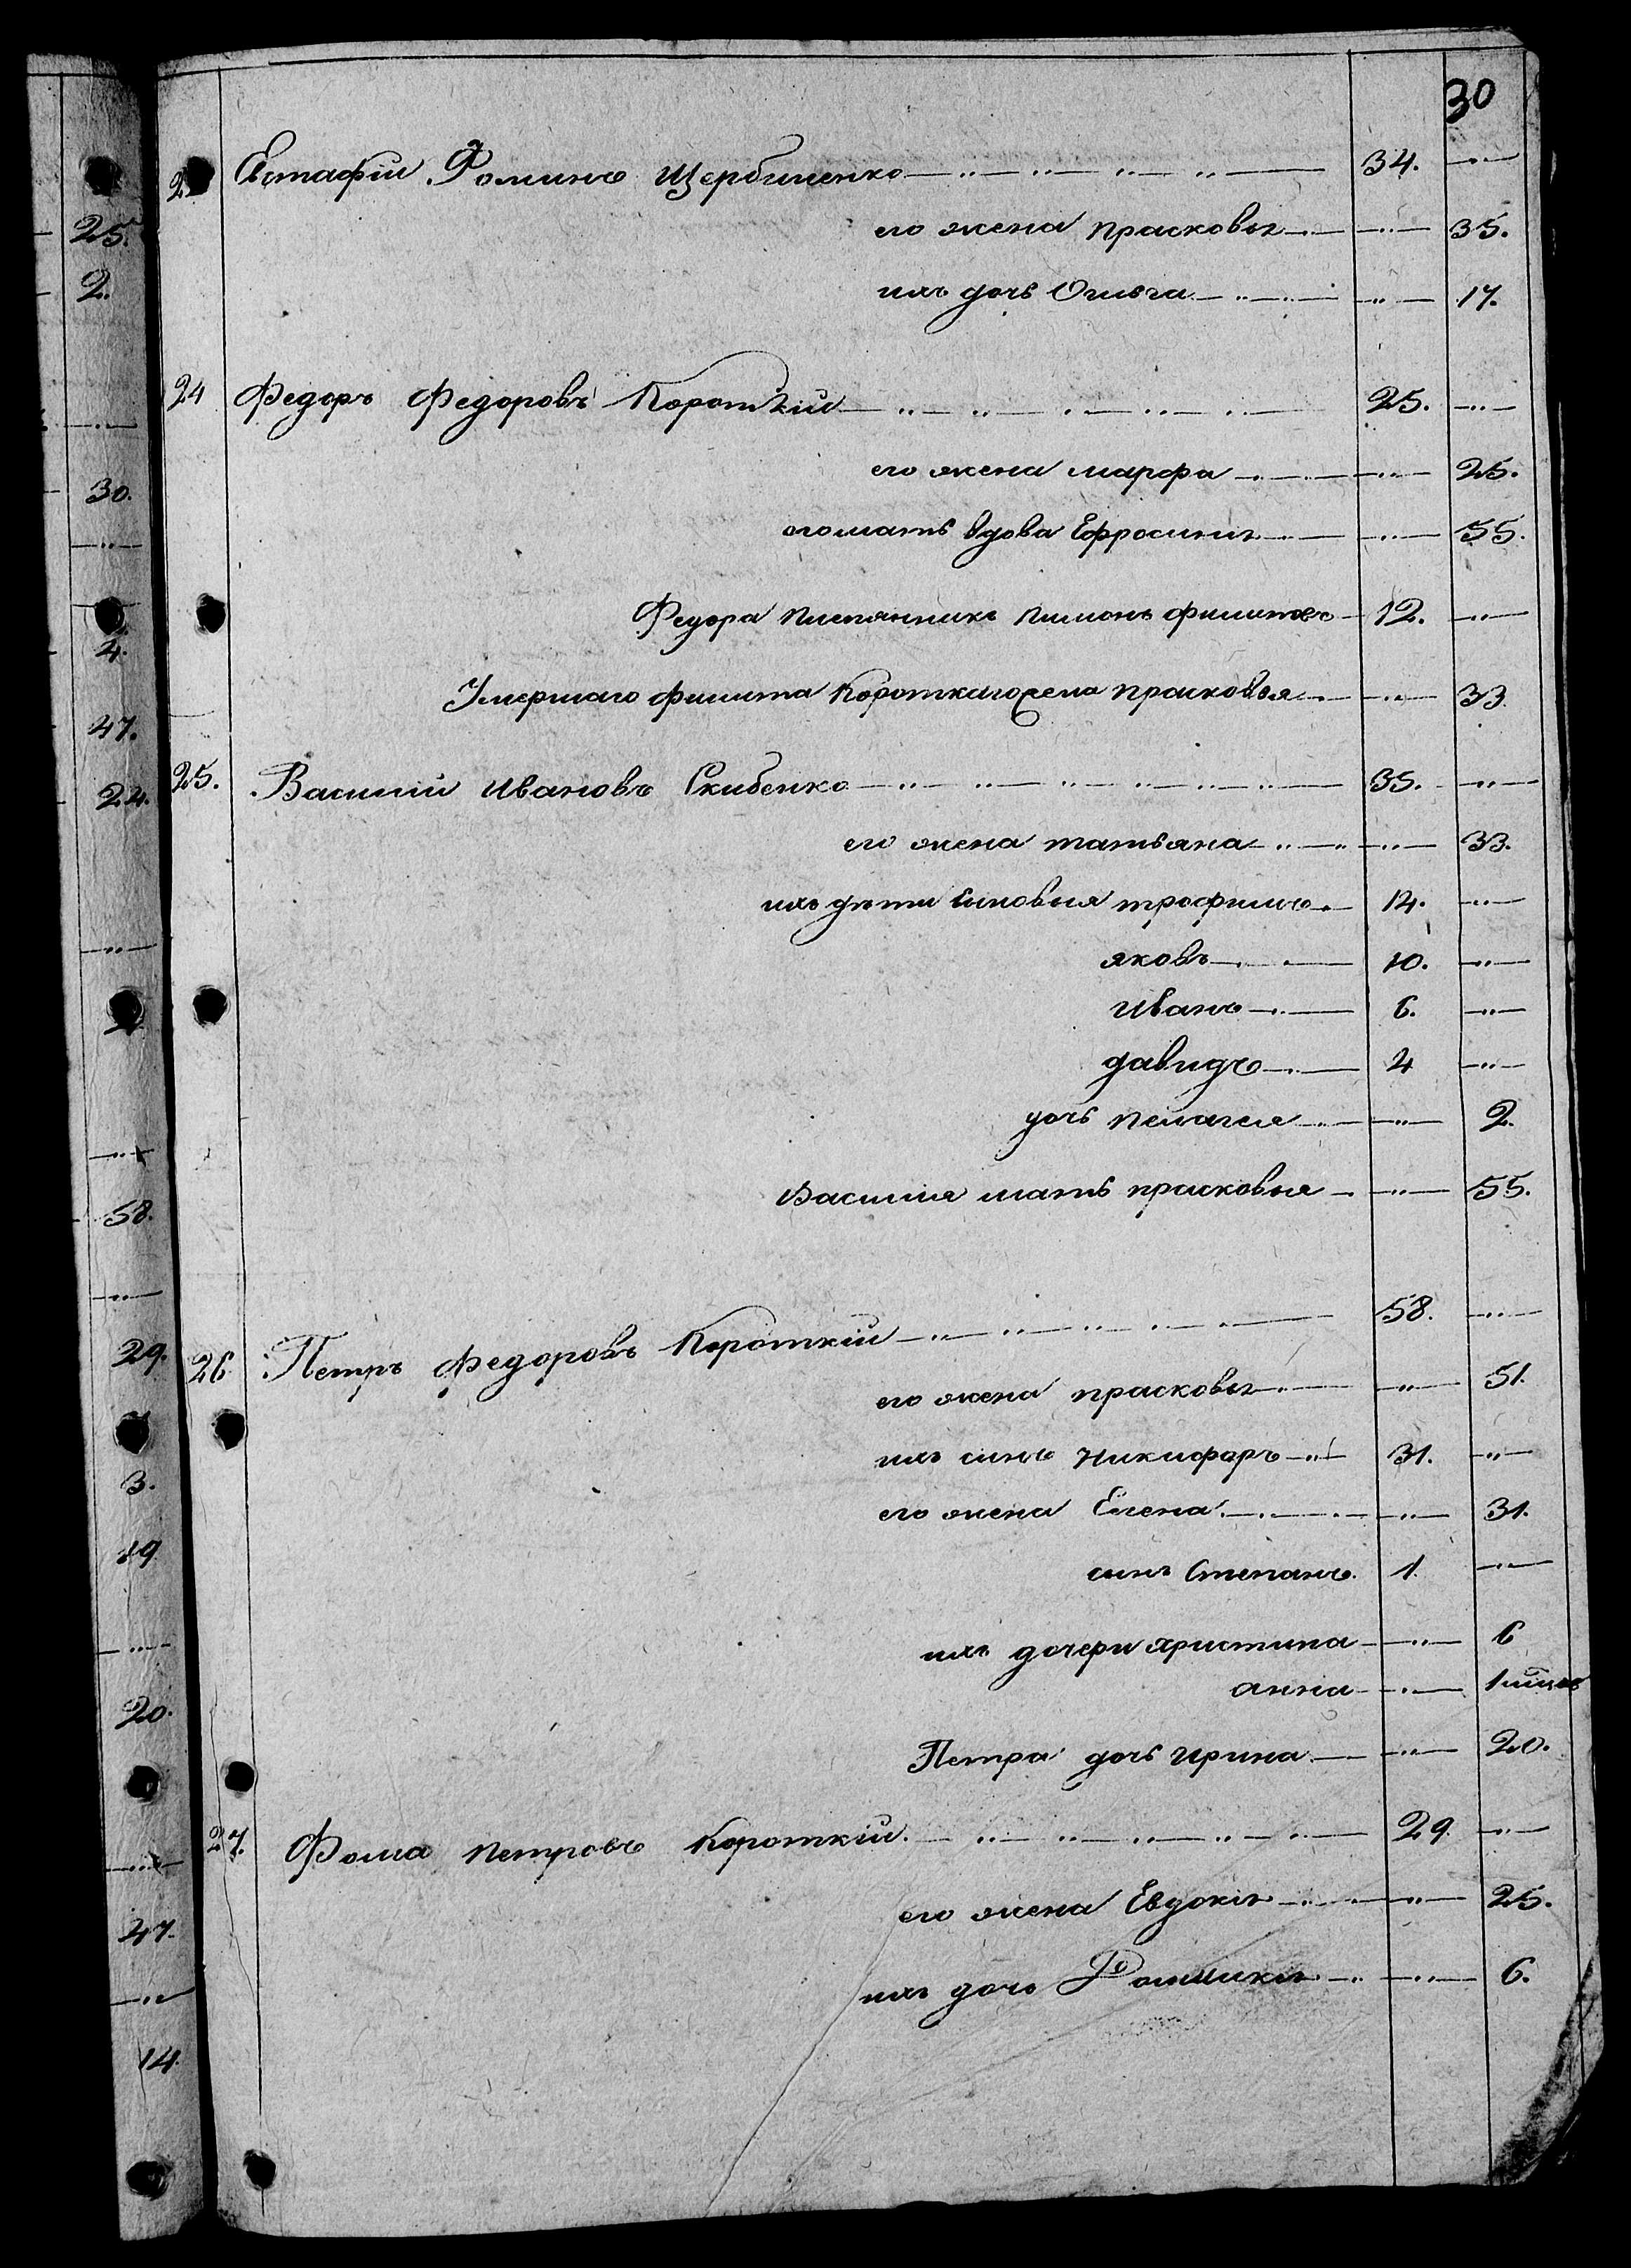 30
2 Евстафій Фоминъ Щербиненко 34.
его жена Прасковья 35.
ихъ дочь Ольга 17.
24 Федоръ Федоровъ Короткій 25.
его жена марфа 25.
его мать вдова Ефросинія 55.
Федора племянникъ Пимонъ филиповъ 12.
Умершаго филипа Короткаго жена прасковья 33
25. Василій Ивановъ Скибенко 35.
его жена татьяна 33.
ихъ дѣти синовья трофимъ 14.
яковъ 10.
иванъ 6.
давидъ 4
дочь пелагея 2.
Василія мать прасковья 55.
26 Петръ Федоровъ Короткій 58.
его жена прасковья 51.
ихъ синъ никифоръ 31.
его жена Елена 31.
синъ Степанъ 1.
ихъ дочери христина 6
анна 1 мѣсяц
Петра дочь ирина 20.
27. Фома петровъ короткій 29.
его жена Евдокія 25.
ихъ дочь 6.
25.
2.
30.
4.
47.
24.
58.
29.
3.
19
20.
47.
14.